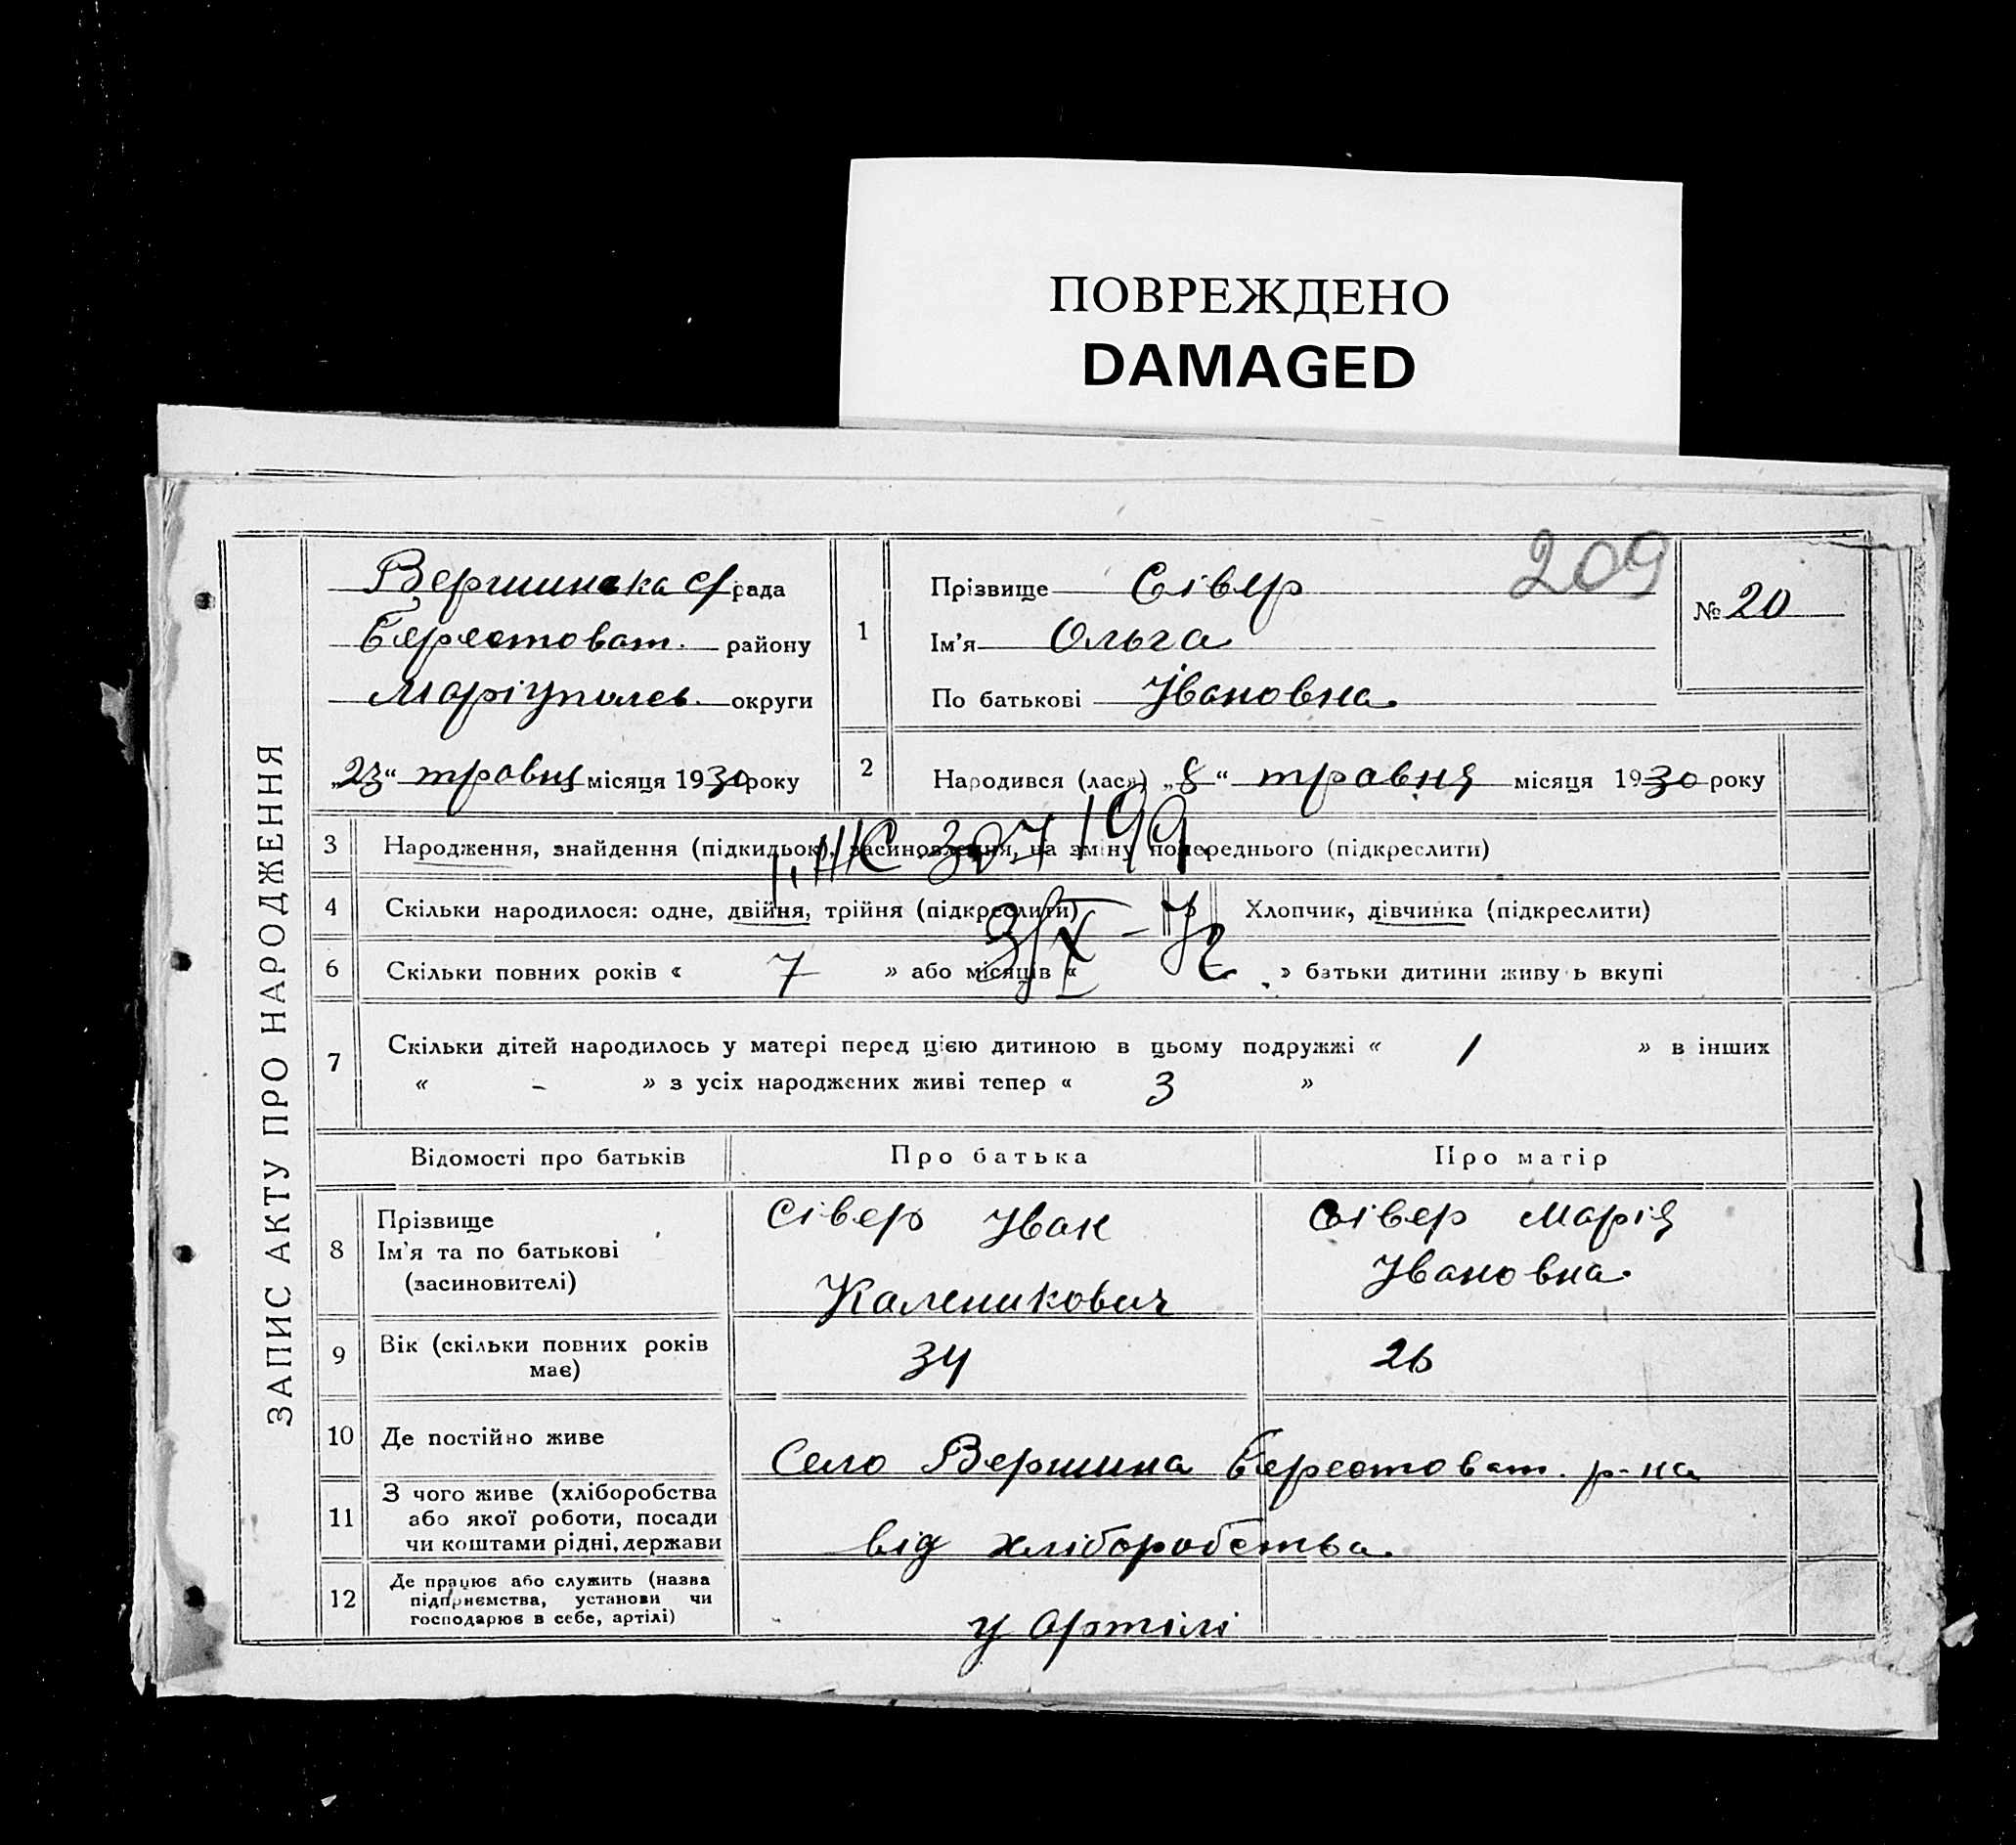 ПОВРЕЖДЕНО
DAMAGED
ЗАПИС АКТУ ПРО НАРОДЖЕННЯ
Вершинська с/рада
Берестоват. району
Маріуполев. округи
„23“ травня місяця 1930 року
209
№ 20
1 Прізвище Сівер
Ім'я Ольга
По батькові Івановна
2 Народився (лася) „8“ травня місяця 1930 року
3 Народження, знайдення (підкидьок), засиновлення, на зміну попереднього (підкреслити)
4 Скільки народилося: одне, двійня, трійня (підкреслити)
Хлопчик, дівчинка (підкреслити)
6 Скільки повних років « 7 » або місяців « » батьки дитини живуть вкупі
7 Скільки дітей народилось у матері перед цією дитиною в цьому подружжі « 1 » в інших
« - » з усіх народжених живі тепер « 3 »
Відомості про батьків Про батька Про матір
8 Прізвище
Ім'я та по батькові
(засиновителі)
Сівер Іван
Каленикович
Сівер Марія
Івановна
9 Вік (скільки повних років
має)
34 26
10 Де постійно живе
Село Вершина Берестоват. р-на
11 З чого живе (хліборобства
або якої роботи, посади
чи коштами рідні, держави
від хліборобства
12 Де працює або служить (назва
підприємства, установи чи
господарює в себе, артілі)
у артілі